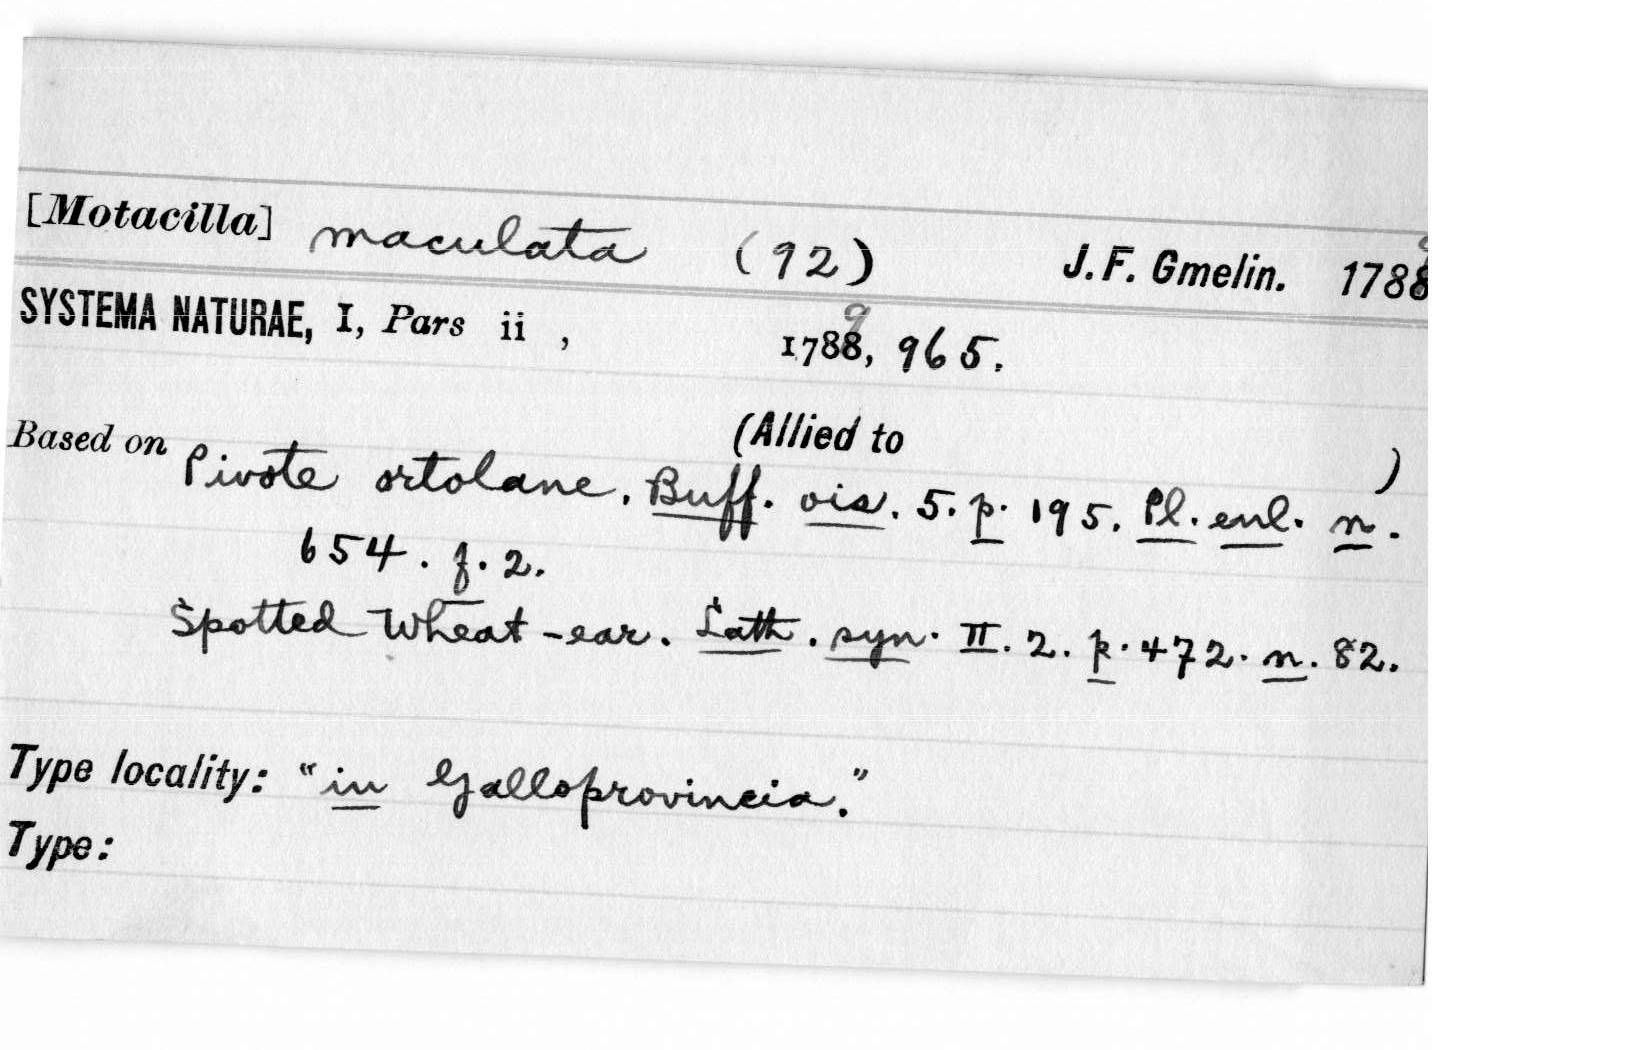 [Motacilla] maculata (92) J. F. Gmelin. 1788
9
SYSTEMA NATURAE, I, Pars ii , 1788, 965.
9
Based on (Allied to )
Pivote ortolane. Buff. ois. 5. p. 195. Pl. enl. n.
654. f. 2.
Spotted Wheat-ear. Lath. syn. II. 2. p. 472. n. 82.
Type locality: "in Galloprovincia."
Type: